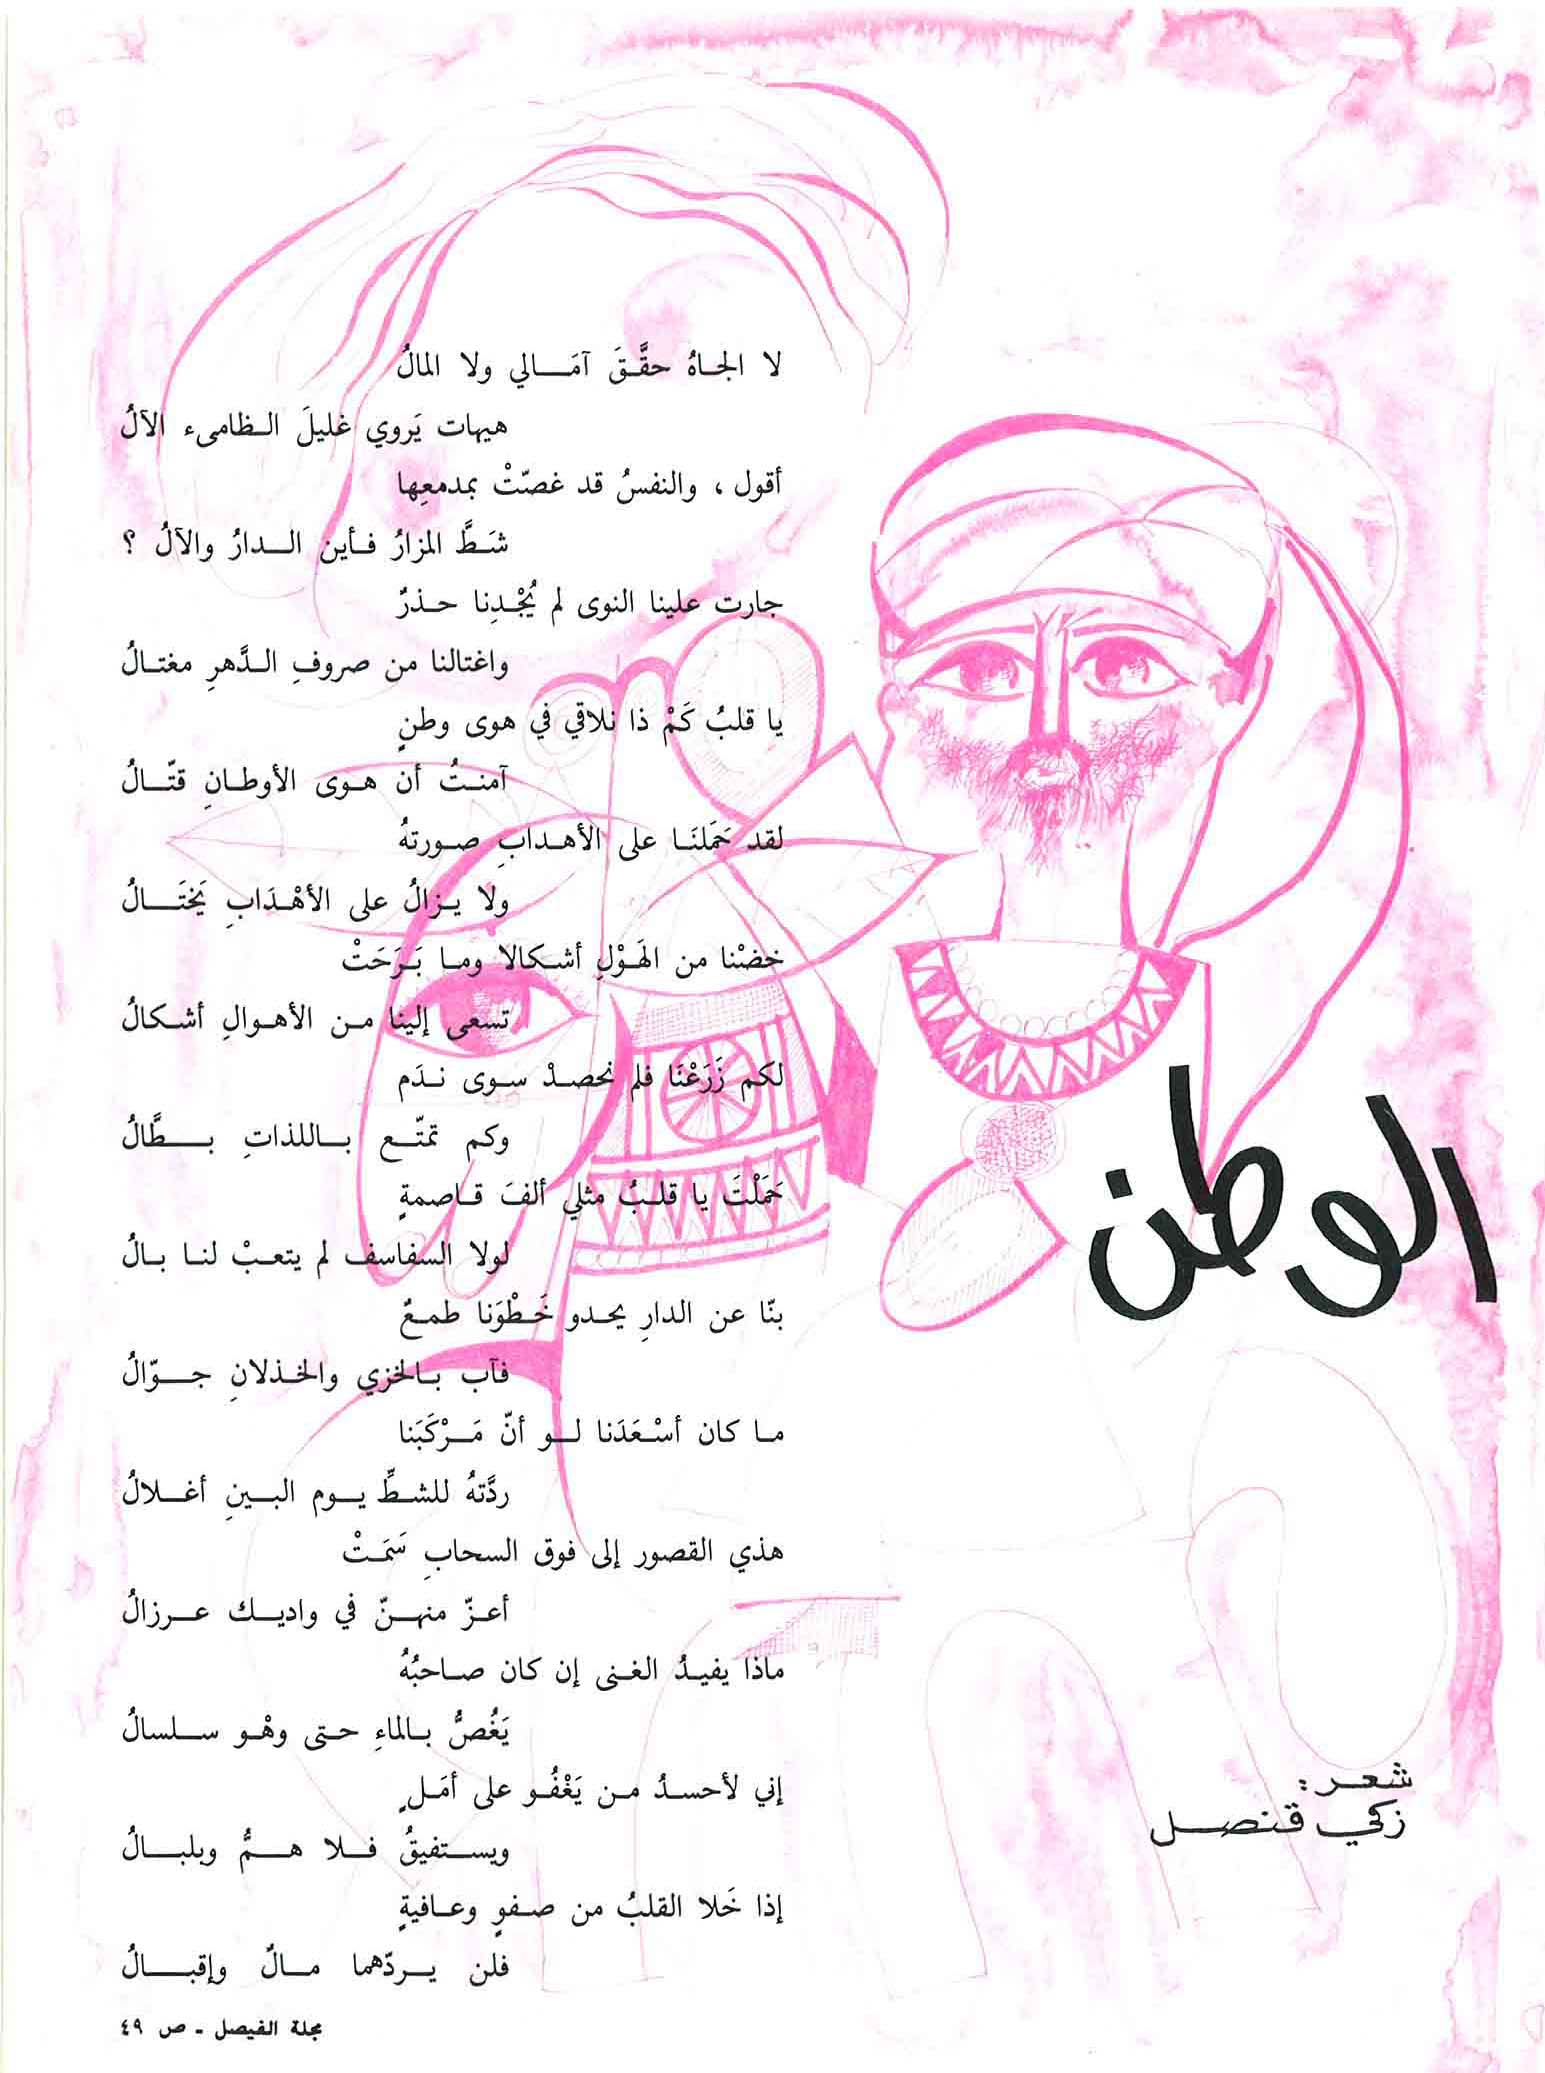 الوطن
شعر :
زكي قنصل
لا الجاهُ حقَّقَ آمَالي ولا المالُ
هيهات يَروي غليلَ الظامىء الآلُ
أقول ، والنفسُ قد غصّتْ بمدمعِها
شَطَّ المزارُ فأين الدارُ والآلُ ؟
جارت علينا النوى لم يُجْدِنا حذرٌ
واغتالنا من صروفِ الدَّهرِ مغتالُ
يا قلبُ كَمْ ذا نلاقي في هوى وطنٍ
آمنتُ أن هوى الأوطانِ قتّالُ
لقد حَمَلنَا على الأهدابِ صورتهُ
ولا يزالُ على الأهْدَابِ يَختَالُ
خضْنا من الهَوْلِ أشكالا وما بَرَحَتْ
تسعى إلينا من الأهوالِ أشكالُ
لكم زَرَعْنَا فلم نحصدْ سوى ندَم
وكم تمتّع باللذاتِ بطَّالُ
حَمَلْتَ يا قلبُ مثلي ألفَ قاصمةٍ
لولا السفاسف لم يتعبْ لنا بالُ
بنّا عن الدارِ يحدو خَطْوَنا طمعٌ
فآب بالخزي والخذلانِ جوّالُ
ما كان أسْعَدَنا لو أنّ مَرْكَبَنا
ردَّتهُ للشطِّ يوم البينِ أغلالُ
هذي القصور إلى فوق السحابِ سَمَتْ
أعزّ منهنّ في واديك عرزالُ
ماذا يفيدُ الغنى إن كان صاحبُهُ
يَغُصُّ بالماءِ حتى وهْو سلسالُ
إني لأحسدُ من يَغْفُو على أمَلٍ
ويستفيقُ فلا همٌّ وبلبالُ
إذا خَلا القلبُ من صفوٍ وعافيةٍ
فلن يردّهما مالٌ وإقبالُ
مجلة الفيصل ـ ص ٤٩